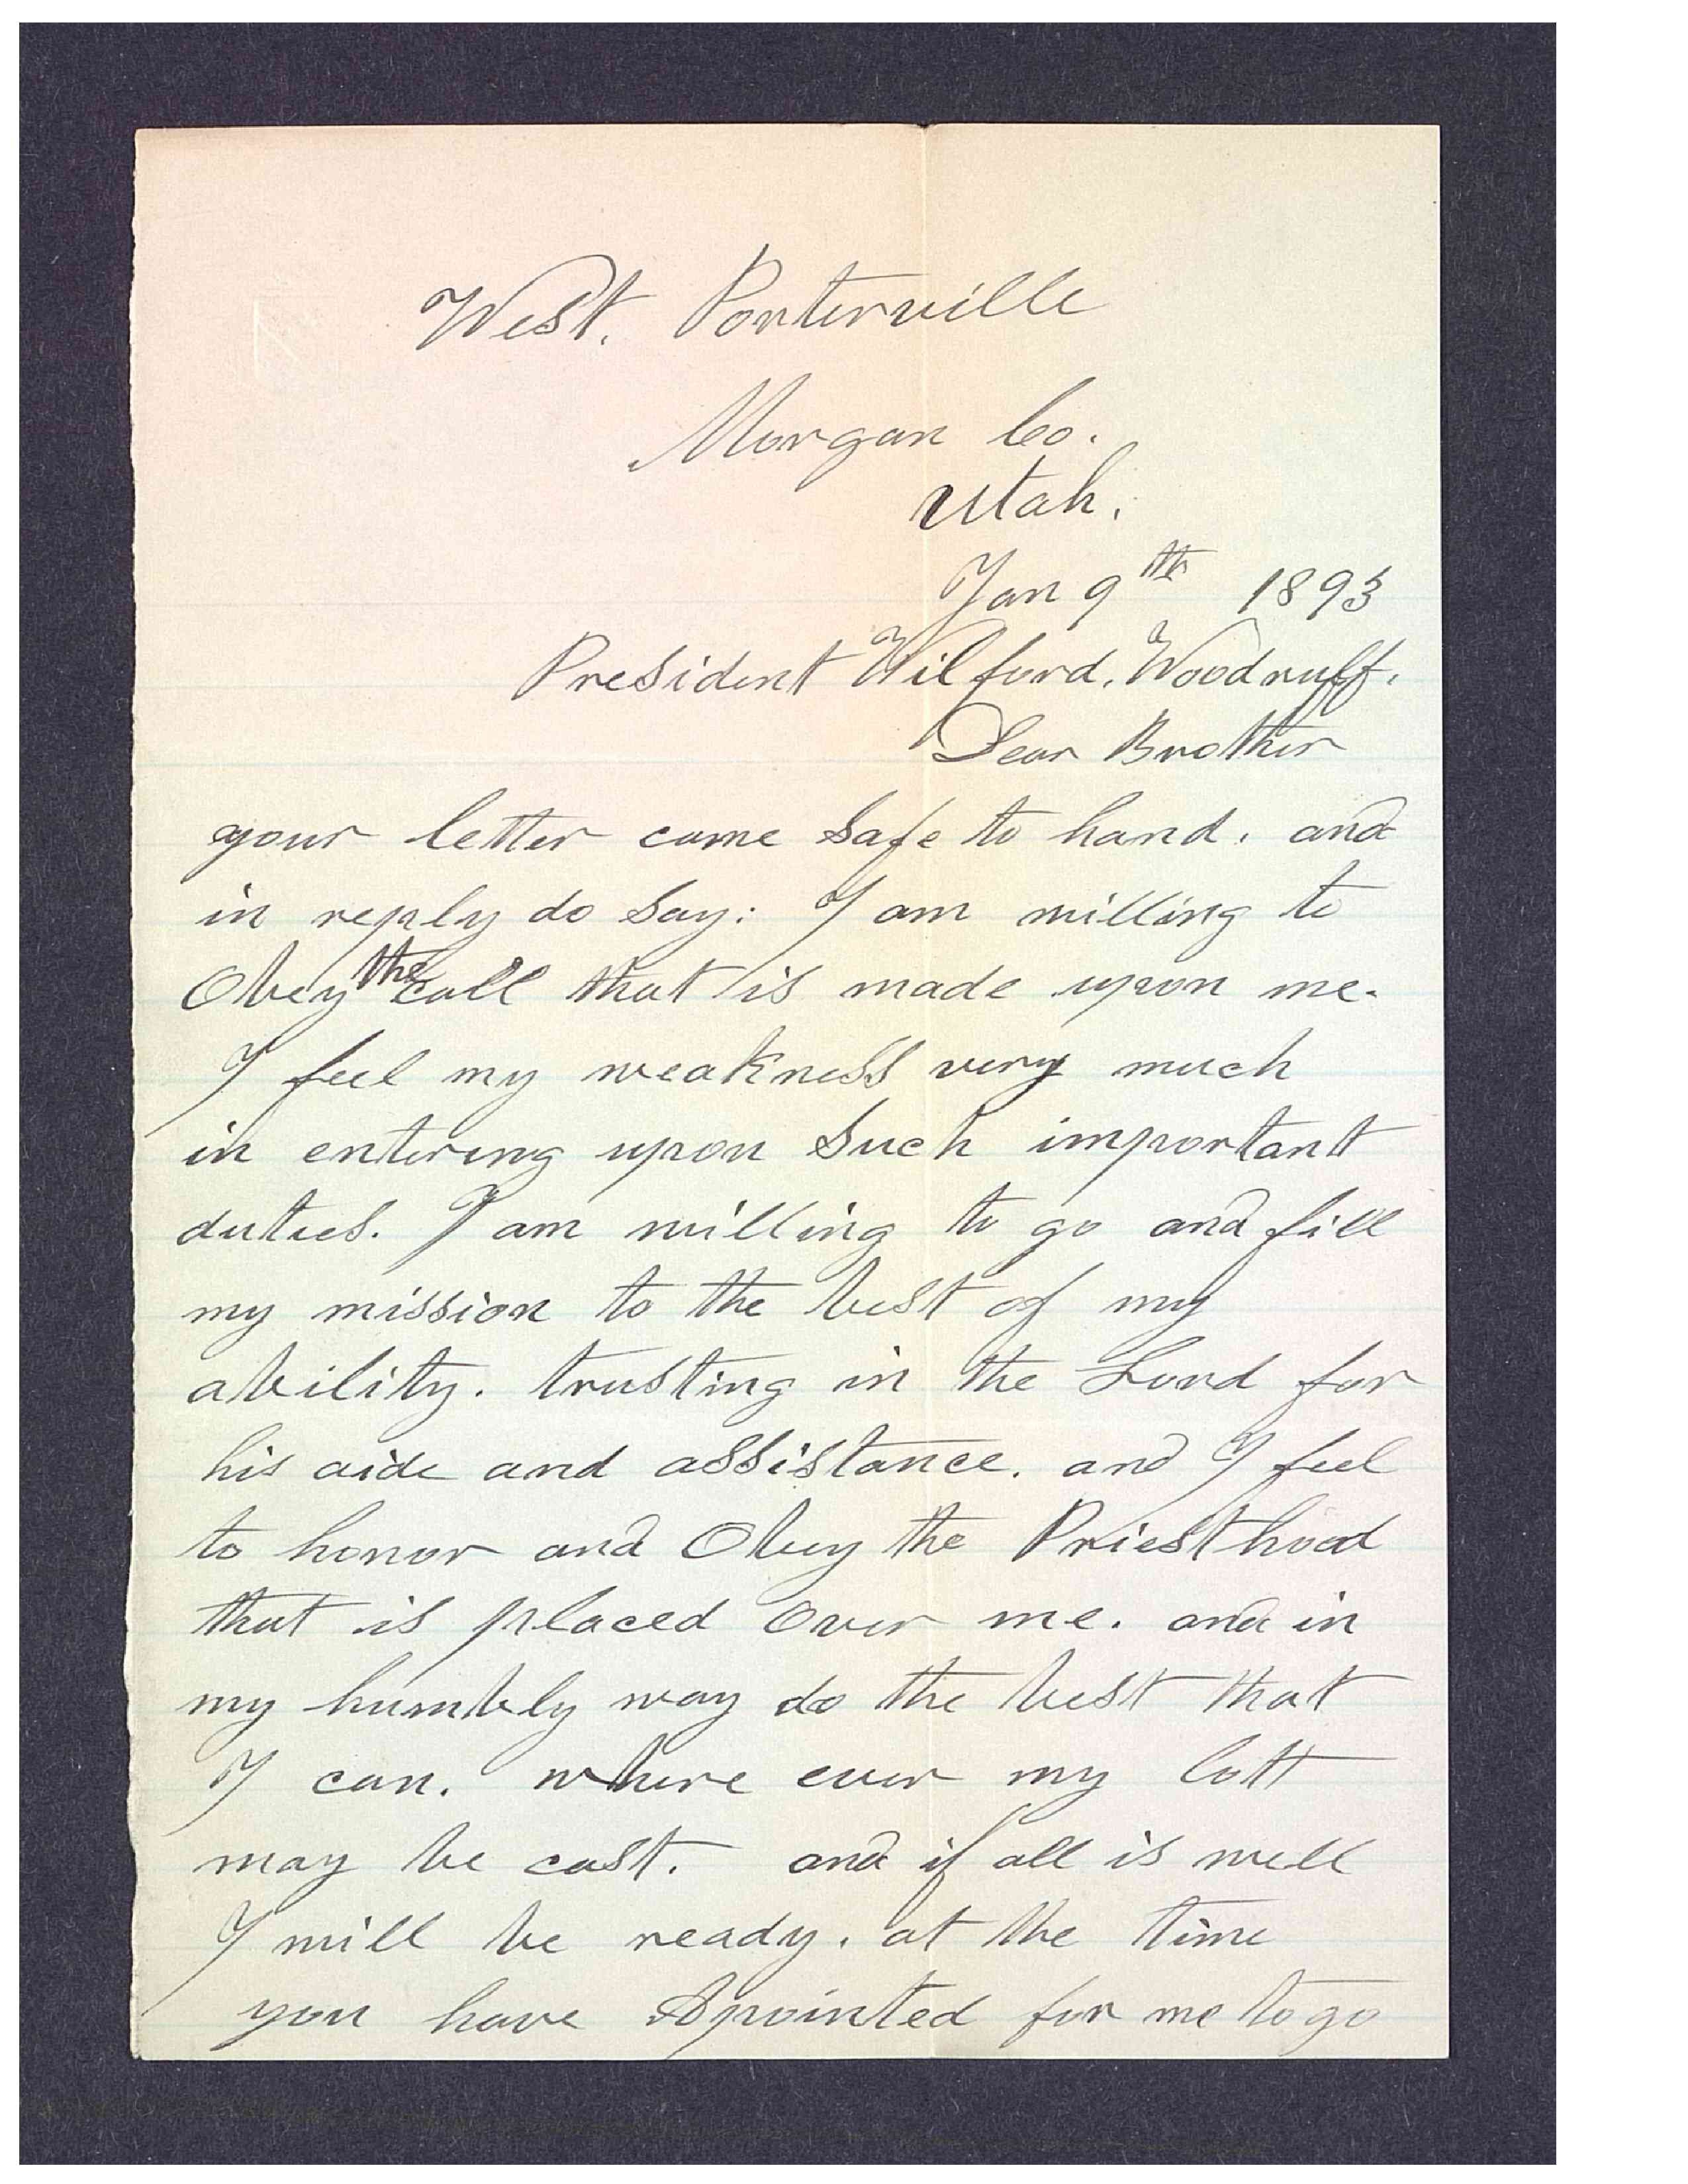 West. Porterville
Morgan Co.
Utah.
Jan 9th 1893
President Wilford. Woodruff.
Dear Brother
your letter came safe to hand. and
in reply do say: I am willing to
Obey the call that is made upon me.
I feel my weakness very much
in entering upon such important
duties. I am willing to go and fill
my mission to the best of my
ability. trusting in the Lord for
his aide and assistance. and I feel
to honor and Obey the Priesthood
that is placed over me. and in
my humbly way do the best that
I can. where ever my lott
may be cast. and if all is well
I will be ready. at the time
you have Apointed for me to go